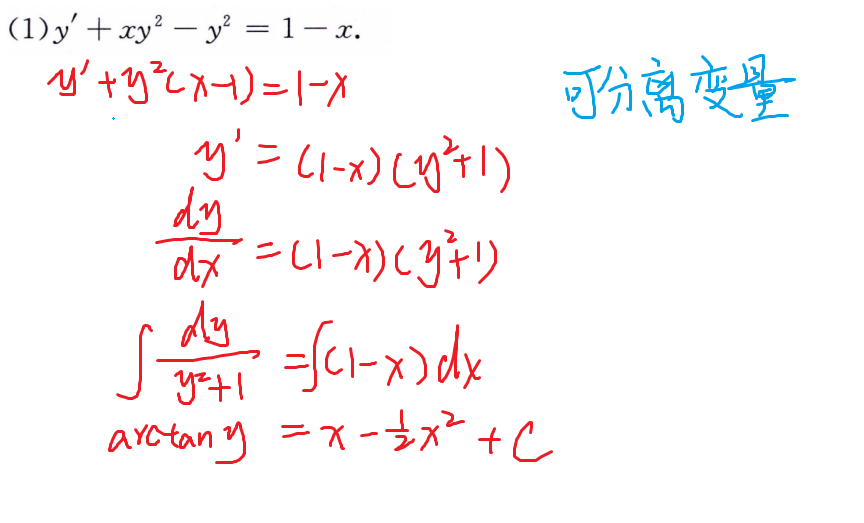 (1) y′ + xy² − y² = 1 − x.
y' + y²(x-1) = 1-x
可分离变量
y' = (1-x)(y²+1)
dy/dx = (1-x)(y²+1)
∫ dy/(y²+1) = ∫(1-x)dx
arctan y = x - 1/2 x² + C